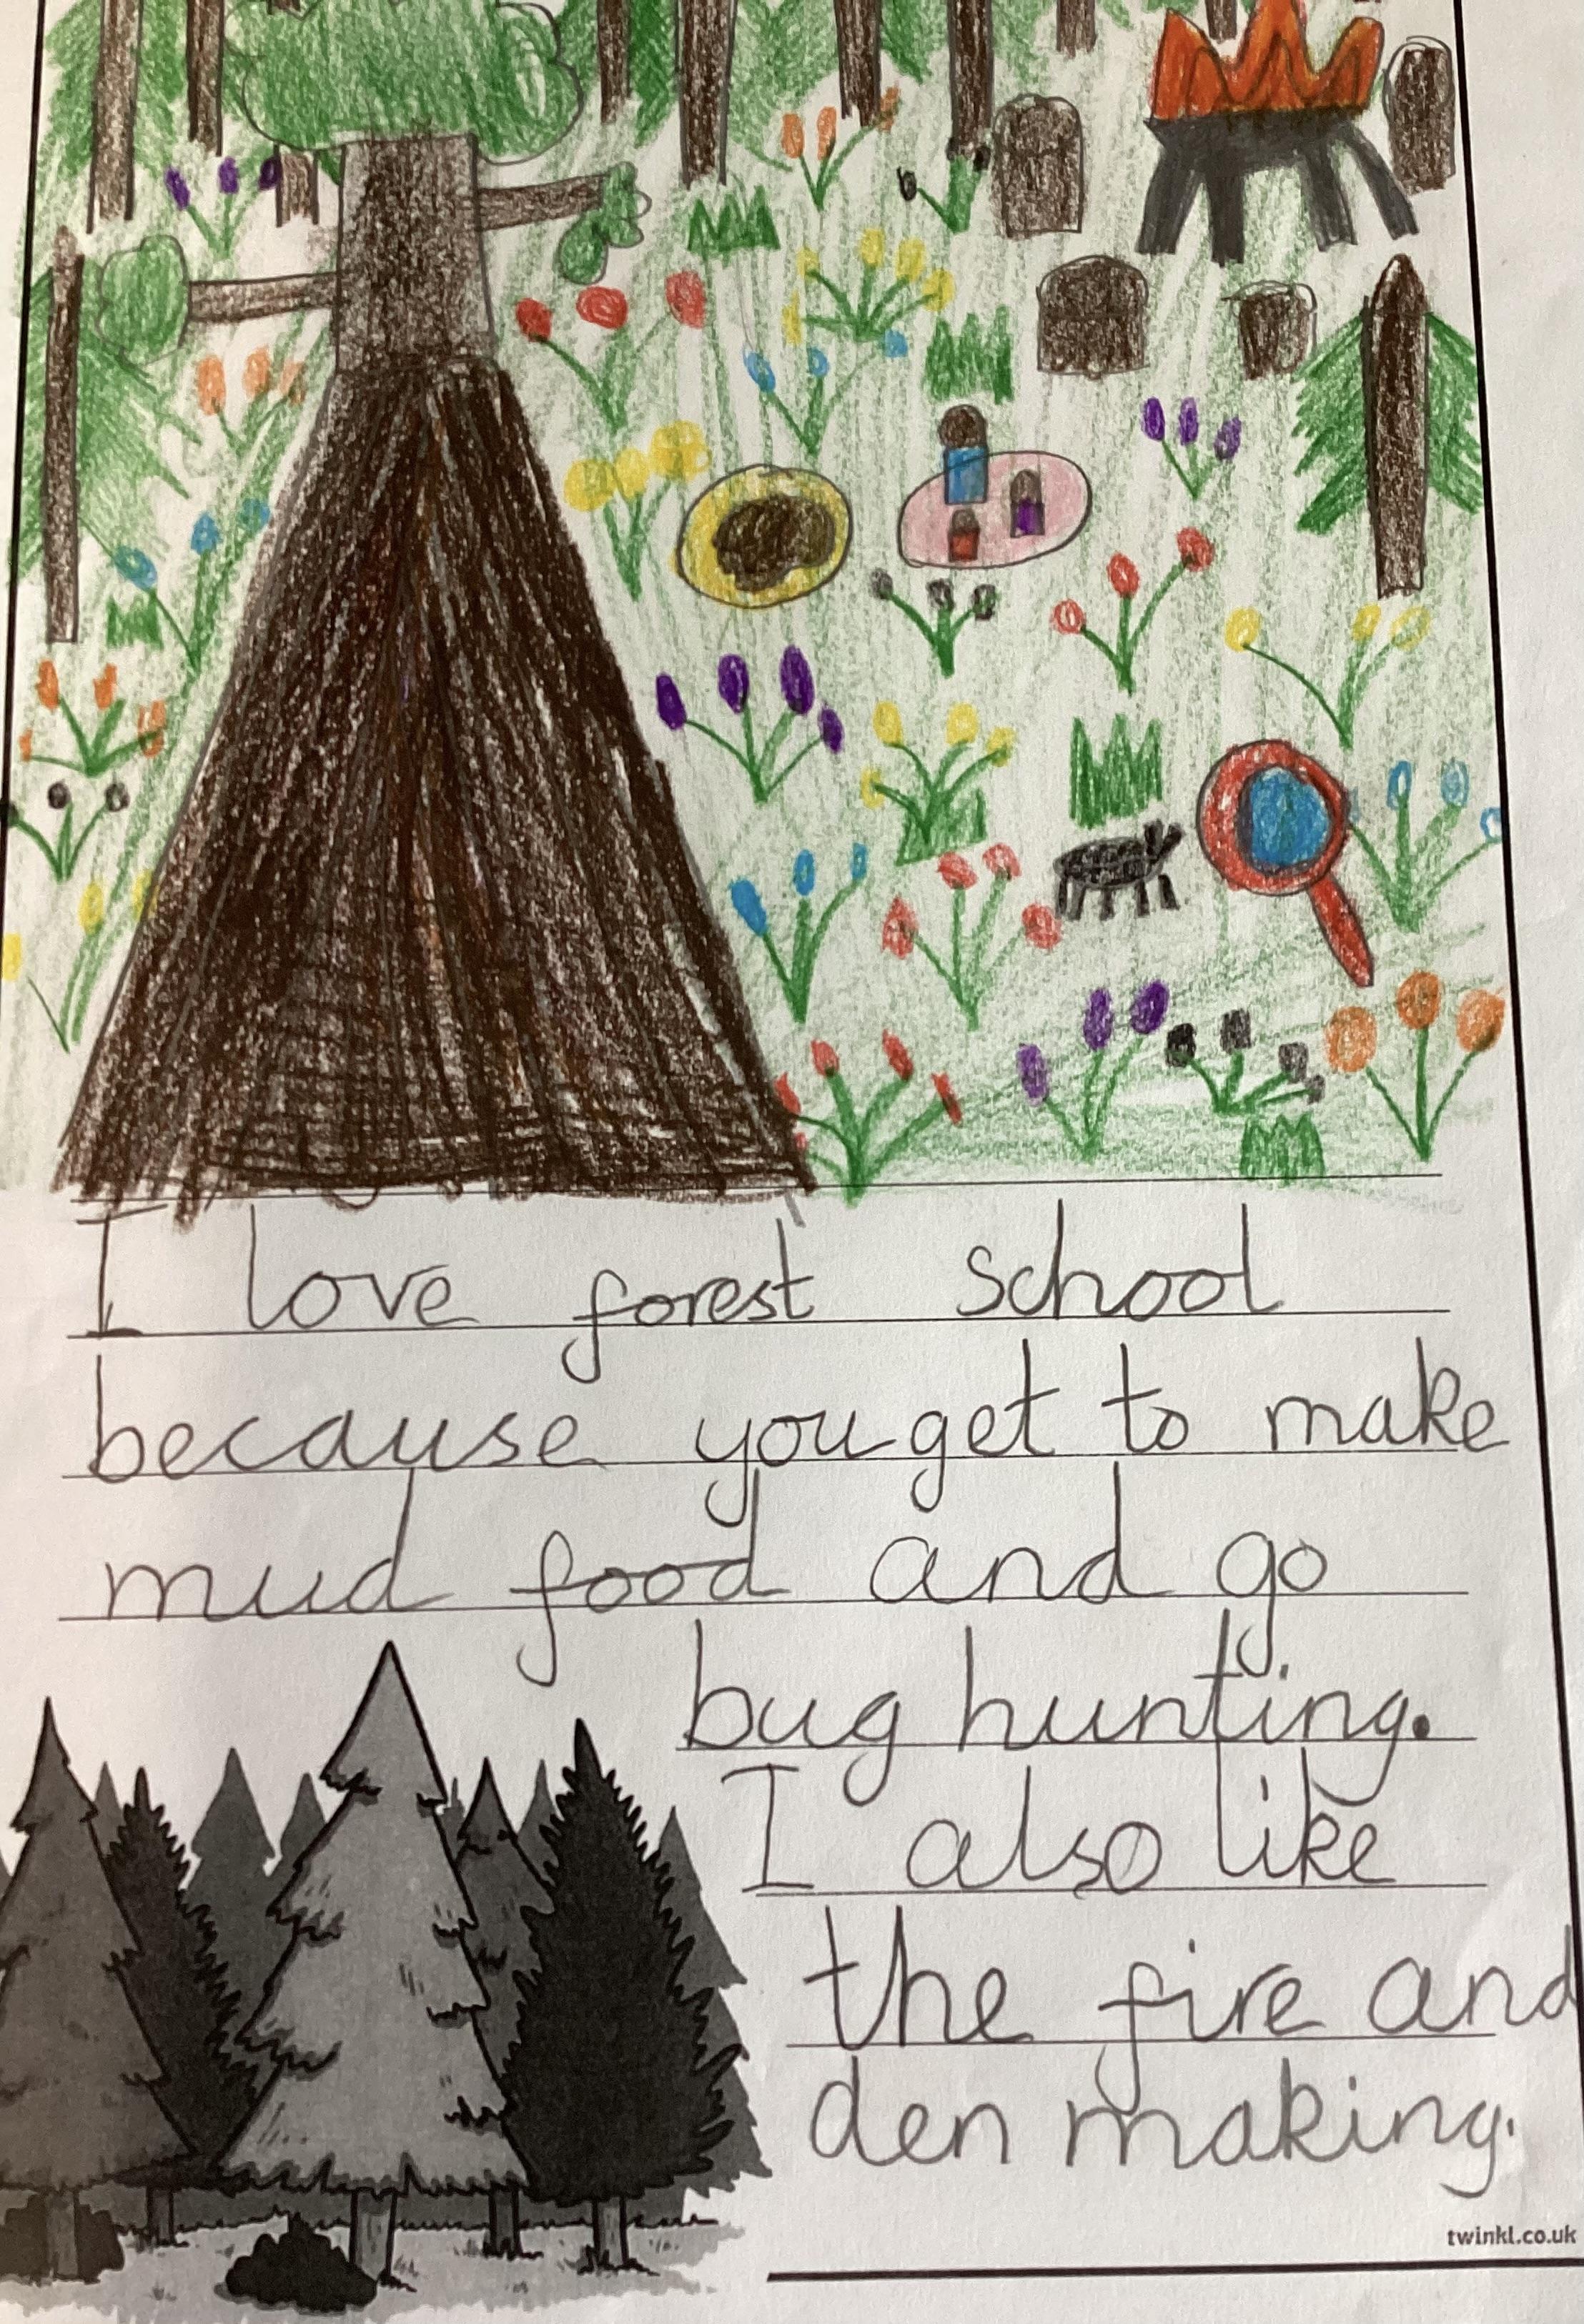 I love forest school
because you get to make
mud food and go
bug hunting.
I also like
the fire and
den making.
twinkl.co.uk